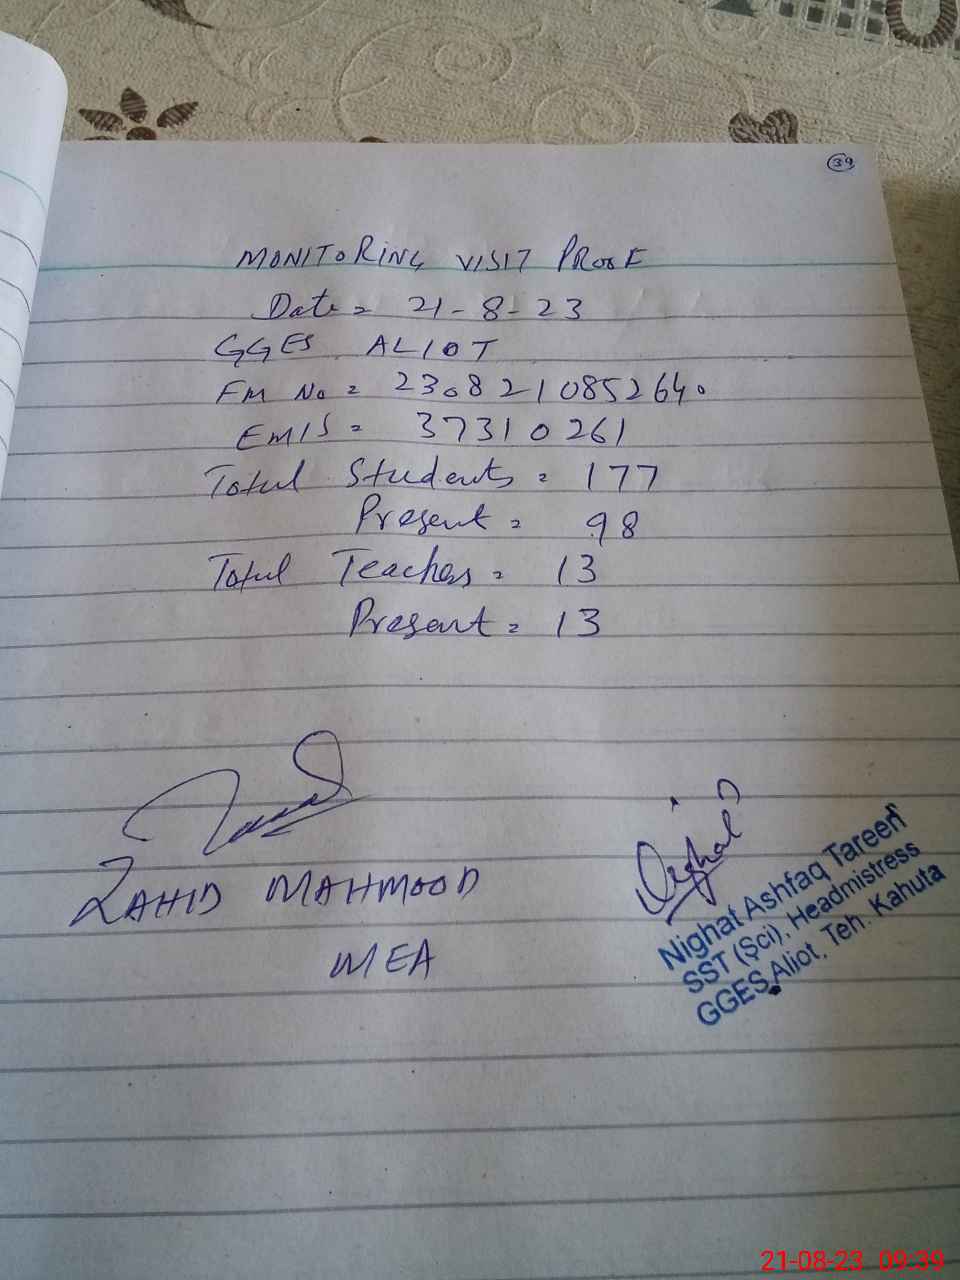 39
MONITORING VISIT PROOF
Date = 21-8-23
GGES ALIOT
FM No = 2308210852640
EMIS = 37310261
Total Students = 177
Present = 98
Total Teachers = 13
Present = 13
ZAHID MAHMOOD
MEA
Nighat
Nighat Ashfaq Tareen
SST (Sci), Headmistress
GGES Aliot. Teh. Kahuta
21-08-23 09:39